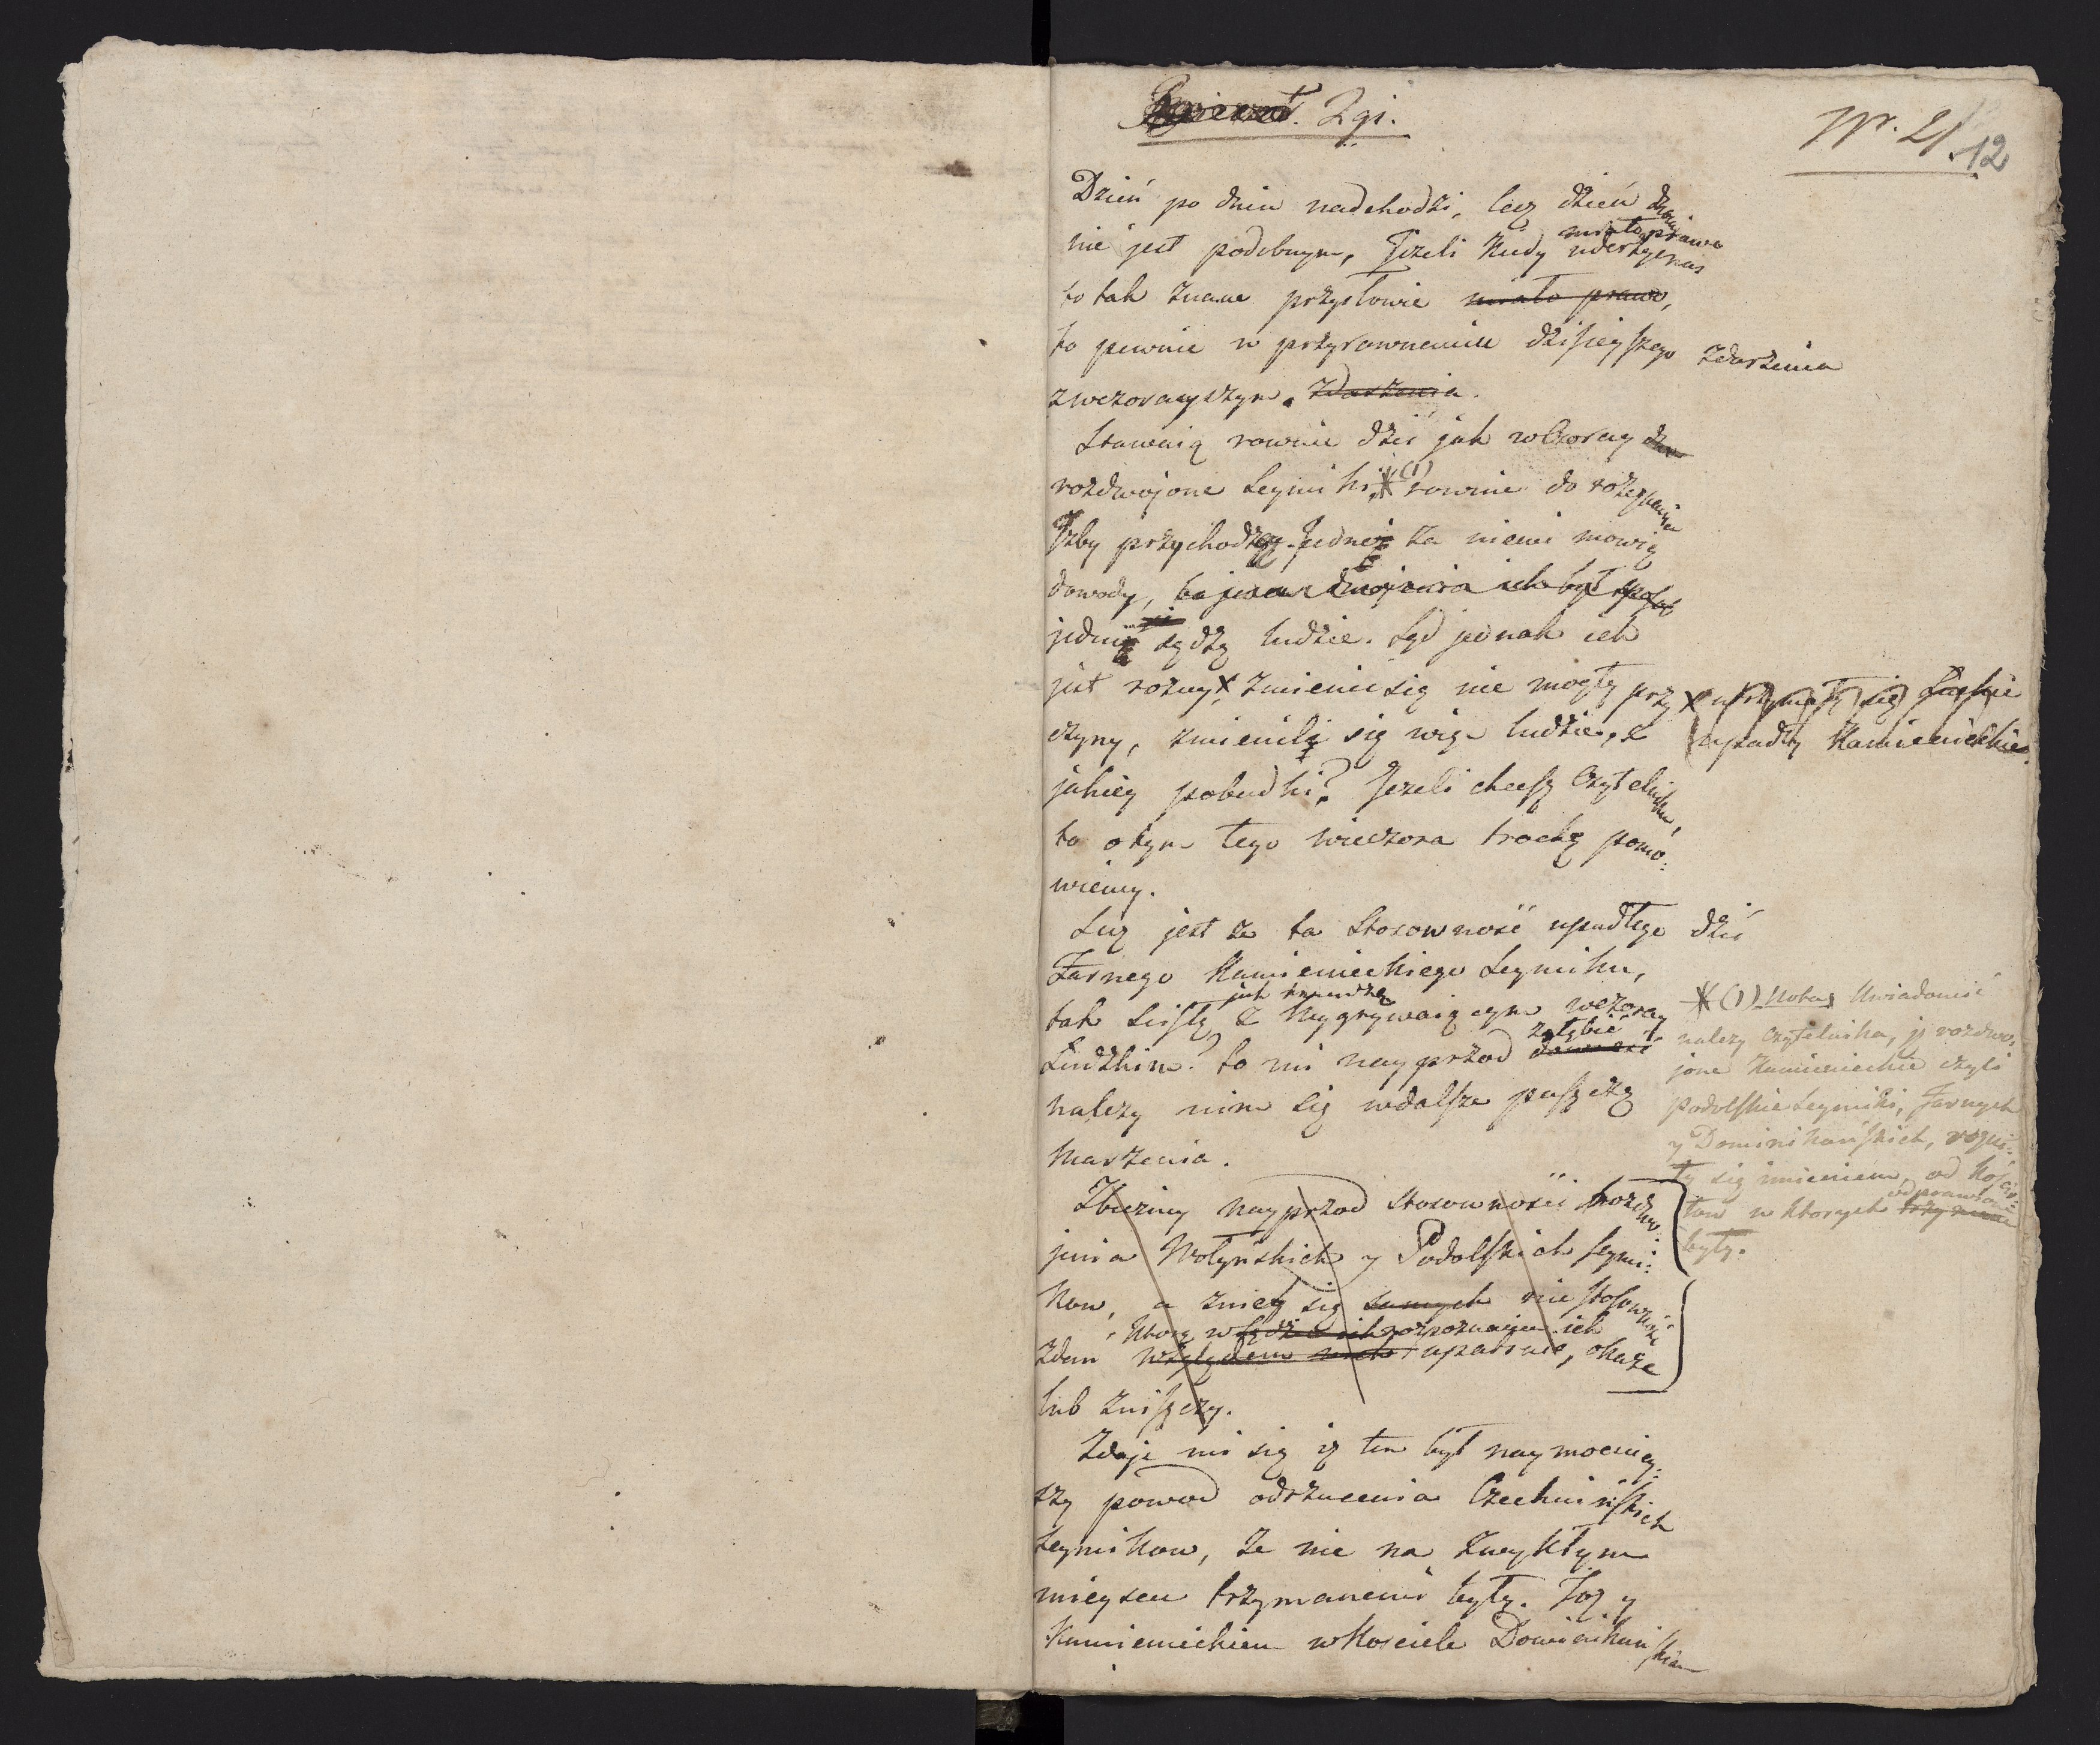 2gi.
Nr. 2/
12
Dzień po dniu nadchodzi, lecz dzień dniowi
nie jest podobnym, Jeżeli kiedy miało prawo uderzyć nas
to tak znane przysłowie miało prawo,
to pewnie w przyrownaniu dzisieyszego zdarzenia
z wczorayszym. zdarzenia.
Stawaią rownie dziś jak wczoray
rozdwojone Seymiki, *(1) rownie do roztrząśnienia
Izby przychodzą. Jedneż za niemi mowią
dowody,
jedniż sądzą ludzie. Sąd jednak ich
jest rożny, x zmienić się nie mogły przy
czyny, zmienili się więc ludzie, z
jakiey pobudki? Jeżeli chcesz Czytelniku,
to o tym tego wieczora trochę pomo:
wiemy.
x utrzymały się Łuckie
upadły Kamienieckie.
Lecz jest że ta Stosowność upadłego dziś
Farnego Kamienieckiego Seymiku,
tak scisłą jak twierdzą z wygrywaiącym wczoray
Łuckim? to mi nayprzod zgłębić
należy nim się w dalsze puszczę
marzenia.
*(1) Nota, Uwiadomić
należy Czytelnika, iż rozdwo:
jone Kamienieckie czyli
Podolskie Seymiki, Farnych
y Dominikańskich, rożni:
ły się imieniem, od Kościo:
łow w ktorych odprawiane
były.
Zbieżmy nayprzod stosowności rozdwo:
jenia Wołyńskich y Podolskich seymi:
kow, a z niey się samych nie stosowność
zdan względem upadnie, okaże
lub zniszczy.
Zdaje mi się iż ten był naymocniey:
szy powod odrzucenia Czechnińskich
Seymikow, że nie na zwykłym
mieyscu trzymanemi były. Toż y
Kamienieckiem w Kosciele Dominikańskim